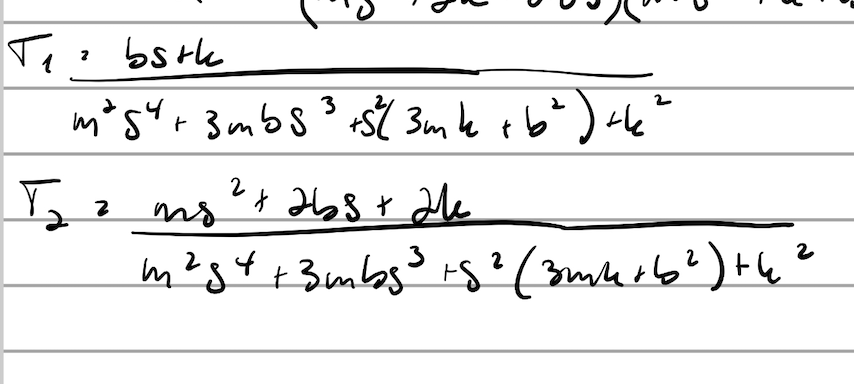 T₁ = bs+k
m²s⁴ + 3mbs³ + s²(3mk + b²) + k²
T₂ = ms² + 2bs + 2k
m²s⁴ + 3mbs³ + s²(3mk + b²) + k²